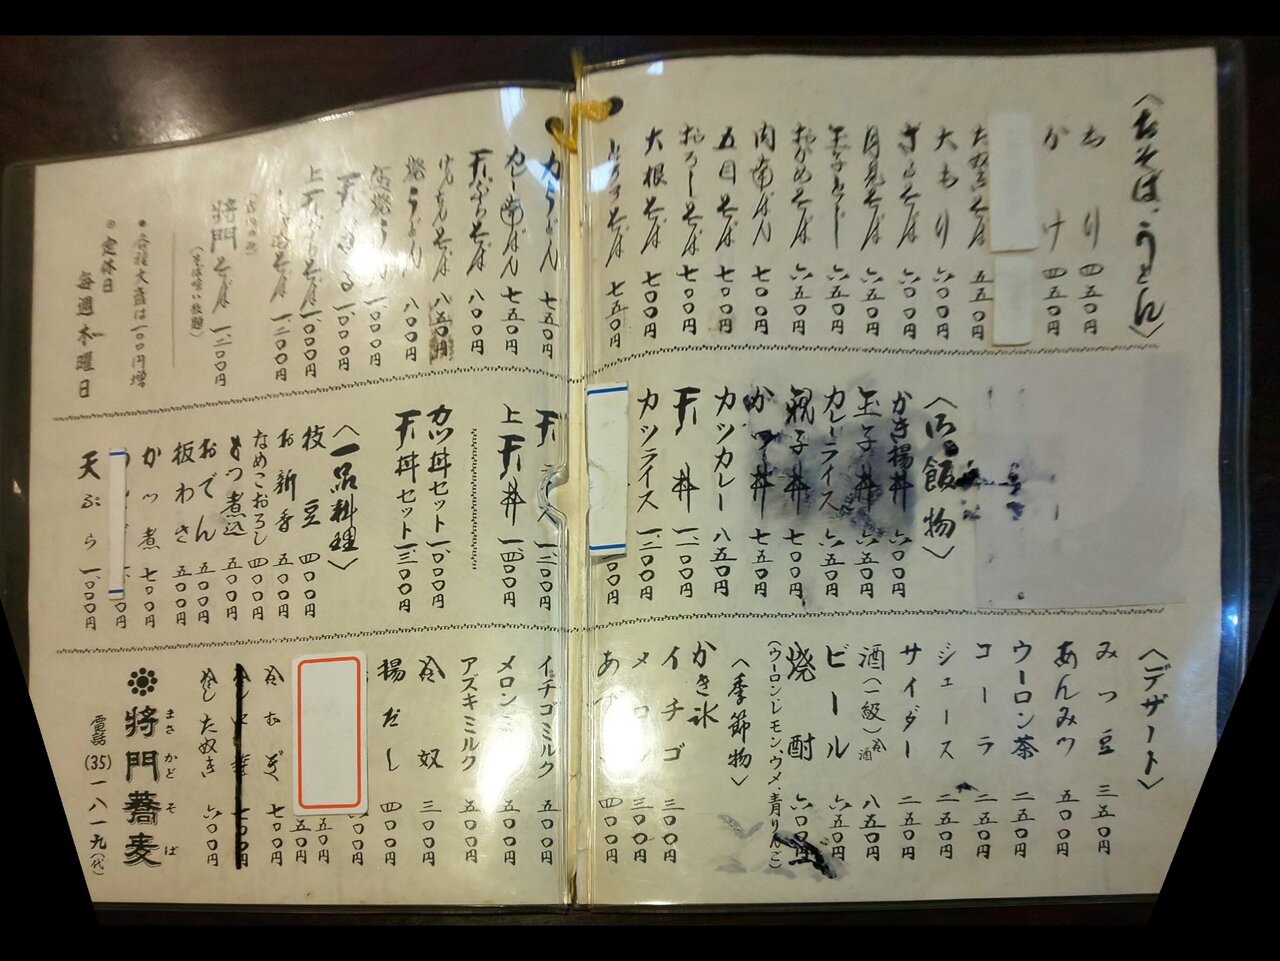 〈おそば、うどん〉
もり 四五〇円
かけ 四五〇円
たぬきそば 五五
大もり 六〇〇円
さらしそば 六〇〇円
月見そば 六五〇円
玉子とじ 六五〇円
おかめそば 六五〇円
肉南ばん 七〇〇円
五目そば 七〇〇円
おろしそば 七〇〇円
大根そば 七〇〇円
そば 七五〇円
力うどん 七五〇円
カレー南ばん 七五〇円
天ぷらそば 八〇〇円
けんちんそば 八五〇円
焼うどん 八〇〇円
一、〇〇〇円
天ざる 一、〇〇〇円
上天ぷらそば 一、〇〇〇円
一、二〇〇円
将門そば 一、二〇〇円
(そば喰い放題)
●各種大盛は一〇〇円増
◎定休日
毎週木曜日
〈御飯物〉
かき揚丼 六〇〇円
玉子丼 六五〇円
カレーライス 六五〇円
親子丼 七〇〇円
かつ丼 七五〇円
カツカレー 八五〇円
天丼 一、一〇〇円
カツライス 一、二〇〇円
〇〇円
天 一、二〇〇円
上天丼 一、四〇〇円
カツ丼セット 一、〇〇〇円
天丼セット 一、三〇〇円
〈一品料理〉
枝豆 四〇〇円
お新香 五〇〇円
なめこおろし 四〇〇円
もつ煮込 五〇〇円
おでん 五〇〇円
板わさ 五〇〇円
かつ煮 七〇〇円
〇円
天ぷら 一、〇〇〇円
〈デザート〉
みつ豆 三五〇円
あんみつ 五〇〇円
ウーロン茶 二五〇円
コーラ 二五〇円
ジュース 二五〇円
サイダー 二五〇円
酒(一級)冷酒 八五〇円
ビール 六五〇円
焼酎 六〇〇円
(ウーロン、レモン、ウメ、青りんご)
〈季節物〉
かき氷
イチゴ 三〇〇円
メロン 三〇〇円
あ 四〇〇円
イチゴミルク 五〇〇円
メロンミ 五〇〇円
アズキミルク 五〇〇円
冷奴 三〇〇円
揚だし 四〇〇円
〇〇円
五〇円
五〇円
冷むぎ 七〇〇円
七〇〇円
冷したぬき 六〇〇円
将門蕎麦
まさかどそば
電話(35)一八一九(代)